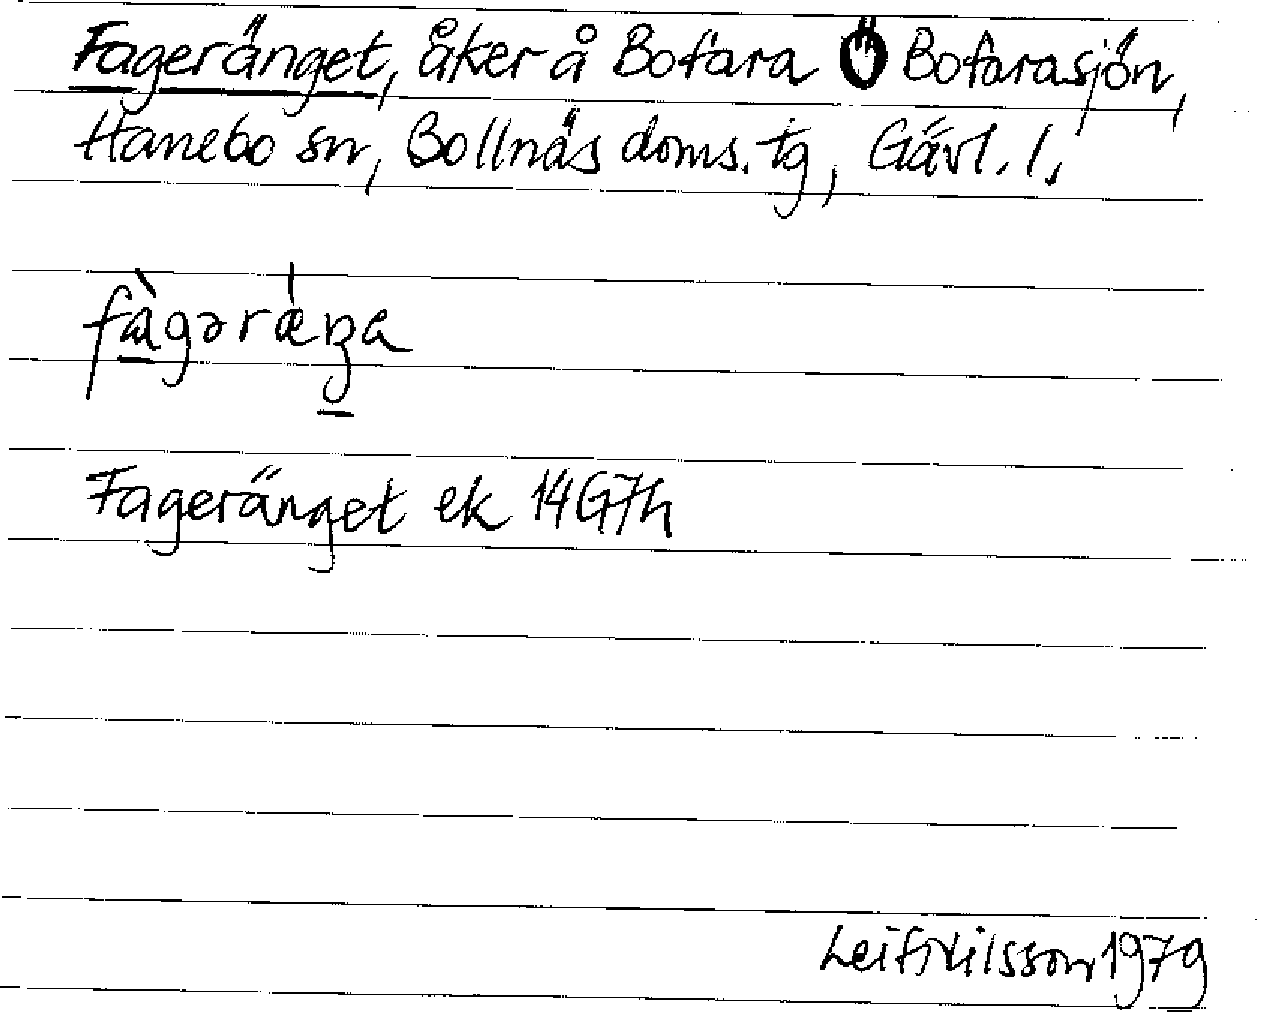 Fageränget, åker å Bofara Ö Bofarasjön,
Hanebo sn, Bollnäs doms. tg, Gävl. l.
fàgərǽŋa
Fageränget ek 14G7h
Leif Nilsson 1979